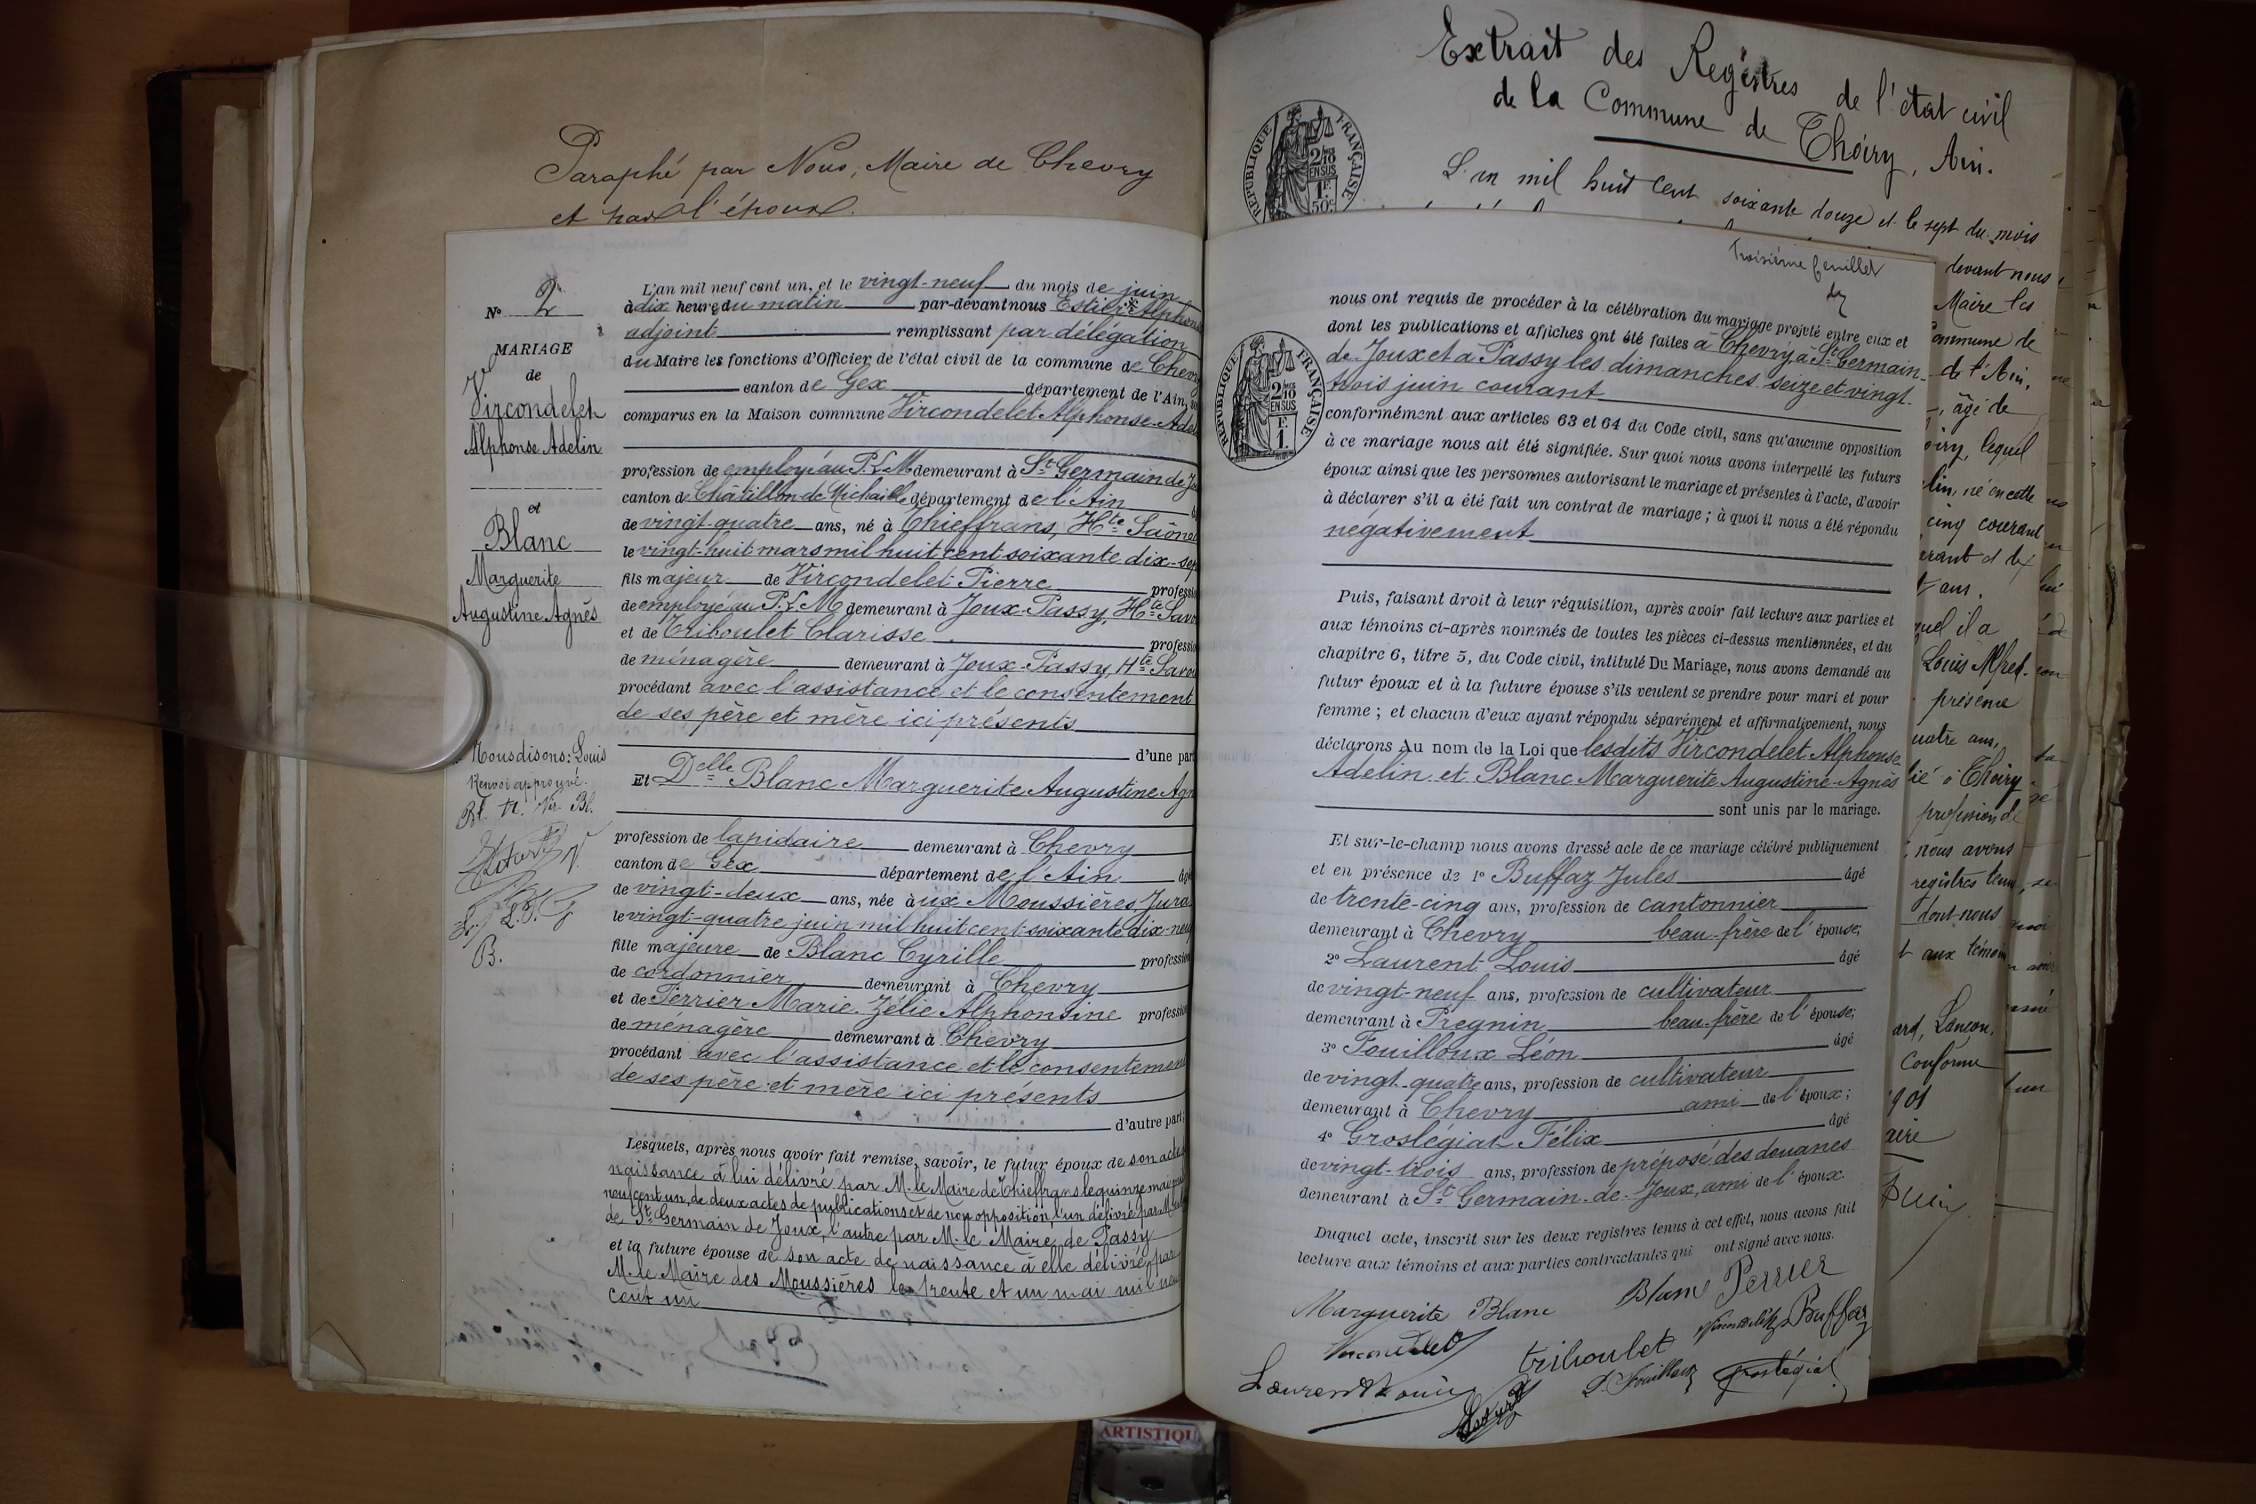 Paraphé par Nous, Maire de Chevry
et par l'époux.
N° 2
MARIAGE
de
Vircondelet
Alphonse Adelin
et
Blanc
Marguerite
Augustine Agnès
Nous disons: Louis
Renvoi approuvé.
Bl. tr. Vir Bl.
B.
L'an mil neuf cent un, et le vingt-neuf du mois de juin
à dix heures du matin par-devant nous Estier * Alphons
adjoint remplissant par délégation
du Maire les fonctions d'Officier de l'état civil de la commune de Chevry
canton de Gex département de l'Ain,
comparus en la Maison commune Vircondelet Alphonse-Ade
profession de employé au P.L.M demeurant à St Germain de Jo
canton de Châtillon de Michaille département de l'Ain
de vingt-quatre ans, né à Chieffrans, Hte Saône
le vingt-huit mars mil huit cent soixante dix-sep
fils majeur de Vircondelet Pierre profession
de employé au P.L.M demeurant à Joux-Passy, Hte Savo
et de Triboulet Clarisse professio
de ménagère demeurant à Joux-Passy, Hte Savoi
procédant avec l'assistance et le consentement
de ses père et mère ici présents
d'une part
Et Delle Blanc Marguerite Augustine Agn
profession de lapidaire demeurant à Chevry
canton de Gex département de l'Ain âgé
de vingt-deux ans, née à ux Moussières, Jura
le vingt-quatre juin mil huit cent soixante dix-neuf
fille majeure de Blanc Cyrille profession
de cordonnier demeurant à Chevry
et de Perrier Marie Zélie Alphonsine profession
de ménagère demeurant à Chevry
procédant avec l'assistance et le consentement
de ses père et mère ici présents
d'autre part;
Lesquels, après nous avoir fait remise, savoir, le futur époux de son acte
naissance à lui délivré par M. le Maire de Chieffrans le quinze mai mil
neuf cent un, de deux actes de publications et de non opposition, l'un délivré par M. le
de St Germain de Joux, l'autre par M. le Maire de Passy
et la future épouse de son acte de naissance à elle délivré par
M. le Maire des Moussières le trente et un mai mil neu
cent un
Extrait des Registres de l'état civil
de la Commune de Thoiry, Ain.
RÉPUBLIQUE FRANÇAISE
2/10 EN SUS
1F 50c
L'an mil huit cent soixante douze et le sept du mois
Troisième feuillet
RÉPUBLIQUE FRANÇAISE
2/10 EN SUS
F 1.
nous ont requis de procéder à la célébration du mariage projeté entre eux et
dont les publications et affiches ont été faites à Chevry, à St Germain-
de Joux et à Passy les dimanches seize et vingt-
trois juin courant
conformément aux articles 63 et 64 du Code civil, sans qu'aucune opposition
à ce mariage nous ait été signifiée. Sur quoi nous avons interpellé les futurs
époux ainsi que les personnes autorisant le mariage et présentes à l'acte, d'avoir
à déclarer s'il a été fait un contrat de mariage; à quoi il nous a été répondu
négativement
Puis, faisant droit à leur réquisition, après avoir fait lecture aux parties et
aux témoins ci-après nommés de toutes les pièces ci-dessus mentionnées, et du
chapitre 6, titre 5, du Code civil, intitulé Du Mariage, nous avons demandé au
futur époux et à la future épouse s'ils veulent se prendre pour mari et pour
femme; et chacun d'eux ayant répondu séparément et affirmativement, nous
déclarons Au nom de la Loi que lesdits Vircondelet Alphonse
Adelin et Blanc Marguerite Augustine Agnès
sont unis par le mariage.
Et sur-le-champ nous avons dressé acte de ce mariage célébré publiquement
et en présence de 1° Buffaz Jules âgé
de trente-cinq ans, profession de cantonnier
demeurant à Chevry beau-frère de l'épouse;
2° Laurent Louis âgé
de vingt-neuf ans, profession de cultivateur
demeurant à Pregnin beau-frère de l'épouse;
3° Fouilloux Léon âgé
de vingt-quatre ans, profession de cultivateur
demeurant à Chevry ami de l'époux;
4° Groslégiat Félix âgé
de vingt-trois ans, profession de préposé des douanes
demeurant à St Germain-de-Joux, ami de l'époux.
Duquel acte, inscrit sur les deux registres tenus à cet effet, nous avons fait
lecture aux témoins et aux parties contractantes qui ont signé avec nous.
Marguerite Blanc Blanc Perrier
Vircondelet triboulet Buffaz
Laurent Louis L. Fouilloux groslégiat
devant nous
Maire les
Commune de
de l'Ain,
, âgé de
oiry, lequel
lin, né en cette
cinq courant
érant et de
ans.
quel il a
Louis Alfred
présence
uatre ans,
lié à Thoiry
profession de
nous avons
registres tenu
dont nous
t aux témoin
ard, Lançon.
Conforme
901
aire
ARTISTIQU